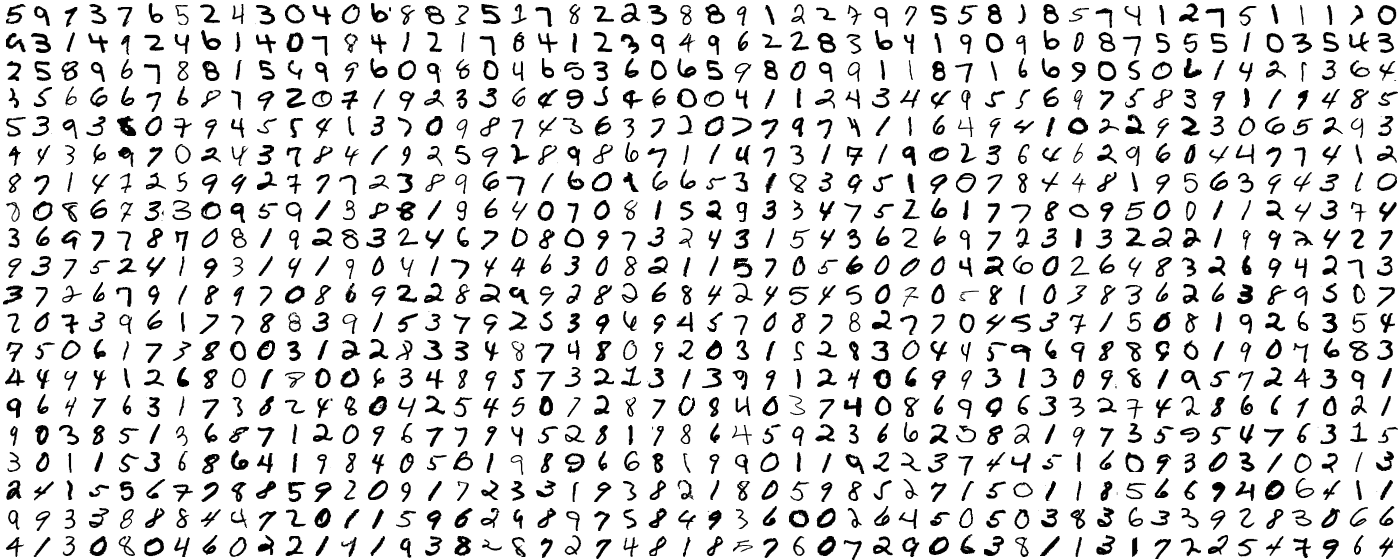 5 9 7 3 7 6 5 2 4 3 0 4 0 6 8 8 3 5 1 7 8 2 2 3 8 8 9 1 2 2 7 9 9 5 5 8 1 8 5 7 4 1 2 7 5 1 1 1 2 0
9 3 1 4 9 2 4 6 1 4 0 7 8 4 1 2 1 7 8 4 1 2 3 9 4 9 6 2 2 8 3 6 4 1 9 0 9 6 0 8 7 5 5 5 1 0 3 5 4 3
2 5 8 9 6 7 8 8 1 5 9 9 9 6 0 9 8 0 4 6 5 3 6 0 6 5 9 8 0 9 9 1 1 8 7 1 6 6 9 0 5 0 6 1 4 2 1 3 6 4
3 5 6 6 6 7 6 8 7 9 2 0 7 1 9 2 3 3 6 4 9 5 4 6 0 0 4 1 1 2 4 3 4 4 9 5 5 6 9 7 5 8 3 9 1 1 9 4 8 5
5 3 9 3 6 0 7 9 4 5 5 4 1 3 7 0 9 8 7 4 3 6 3 7 2 0 7 7 9 7 4 1 1 6 4 9 4 1 0 2 2 9 2 3 0 6 5 2 9 3
4 4 3 6 9 7 0 2 4 3 7 8 4 1 9 2 5 9 2 8 9 8 6 7 1 1 4 7 3 1 7 1 9 0 2 3 6 4 6 2 9 6 0 4 4 7 7 4 1 2
8 7 1 4 7 2 5 9 9 2 7 7 7 2 3 8 9 6 7 1 6 0 9 6 6 5 3 1 8 3 9 5 1 9 0 7 8 4 4 8 1 9 5 6 3 9 4 3 1 0
7 0 8 6 7 3 3 0 9 5 9 1 3 8 8 1 9 6 4 0 7 0 8 1 5 2 9 3 3 4 7 5 2 6 1 7 7 8 0 9 5 0 0 1 1 2 4 3 7 4
3 6 9 7 7 8 7 0 8 1 9 2 8 3 2 4 6 7 0 8 0 9 7 3 2 4 3 1 5 4 3 6 2 6 9 7 2 3 1 3 2 2 2 1 9 9 2 4 2 7
9 3 7 5 2 4 1 9 3 1 4 1 9 0 4 1 7 4 4 6 3 0 8 2 1 1 5 7 0 5 6 0 0 0 4 2 6 0 2 6 4 8 3 2 6 9 4 2 7 3
3 7 2 6 7 9 1 8 9 7 0 8 6 9 2 2 8 2 9 9 2 8 2 6 8 4 2 4 5 4 5 0 7 0 5 8 1 0 3 8 3 6 2 6 3 8 9 5 0 7
2 0 7 3 9 6 1 7 7 8 8 3 9 1 5 3 7 9 2 5 3 9 6 9 4 5 7 0 8 7 8 2 7 7 0 4 5 3 7 1 5 0 8 1 9 2 6 3 5 4
7 5 0 6 1 7 3 8 0 0 3 1 2 2 8 3 3 4 8 7 4 8 0 9 2 0 3 1 5 2 8 3 0 4 4 5 9 6 9 8 8 9 0 1 9 0 7 6 8 3
4 4 9 4 1 2 6 8 0 1 8 0 0 6 3 4 8 9 5 7 3 2 1 3 1 3 9 9 1 2 4 0 6 9 9 3 1 3 0 9 8 1 9 5 7 2 4 3 9 1
9 6 4 7 6 3 1 7 3 8 2 4 8 0 4 2 5 4 5 0 7 2 8 7 0 8 4 0 3 7 4 0 8 6 9 9 6 3 3 2 7 4 2 8 6 6 1 0 2 1
9 0 3 8 5 1 3 6 8 7 1 2 0 9 6 7 7 9 4 5 2 8 1 9 8 6 4 5 9 2 3 6 6 2 3 8 2 1 9 7 3 5 9 5 4 7 6 3 1 5
3 0 1 1 5 3 6 8 6 4 1 9 8 4 0 5 6 1 9 8 9 6 6 8 1 9 9 0 1 1 9 2 2 3 7 4 4 5 1 6 0 9 3 0 3 1 0 2 1 3
2 4 1 5 5 6 7 7 8 8 5 9 2 0 9 1 7 2 3 3 1 9 3 8 2 1 8 0 5 9 8 5 2 7 1 5 0 1 1 8 5 6 6 9 4 0 6 4 1 1
9 9 3 3 8 8 8 4 4 7 2 0 1 1 5 9 6 2 4 8 9 7 5 8 4 9 3 6 0 0 2 6 4 5 0 5 0 3 8 3 6 3 3 9 2 8 3 0 6 6
4 1 3 0 8 0 4 6 0 2 2 1 4 1 9 3 8 2 8 7 2 7 4 8 1 8 5 7 6 0 7 2 9 0 6 3 8 1 3 1 7 2 2 5 4 7 9 6 4